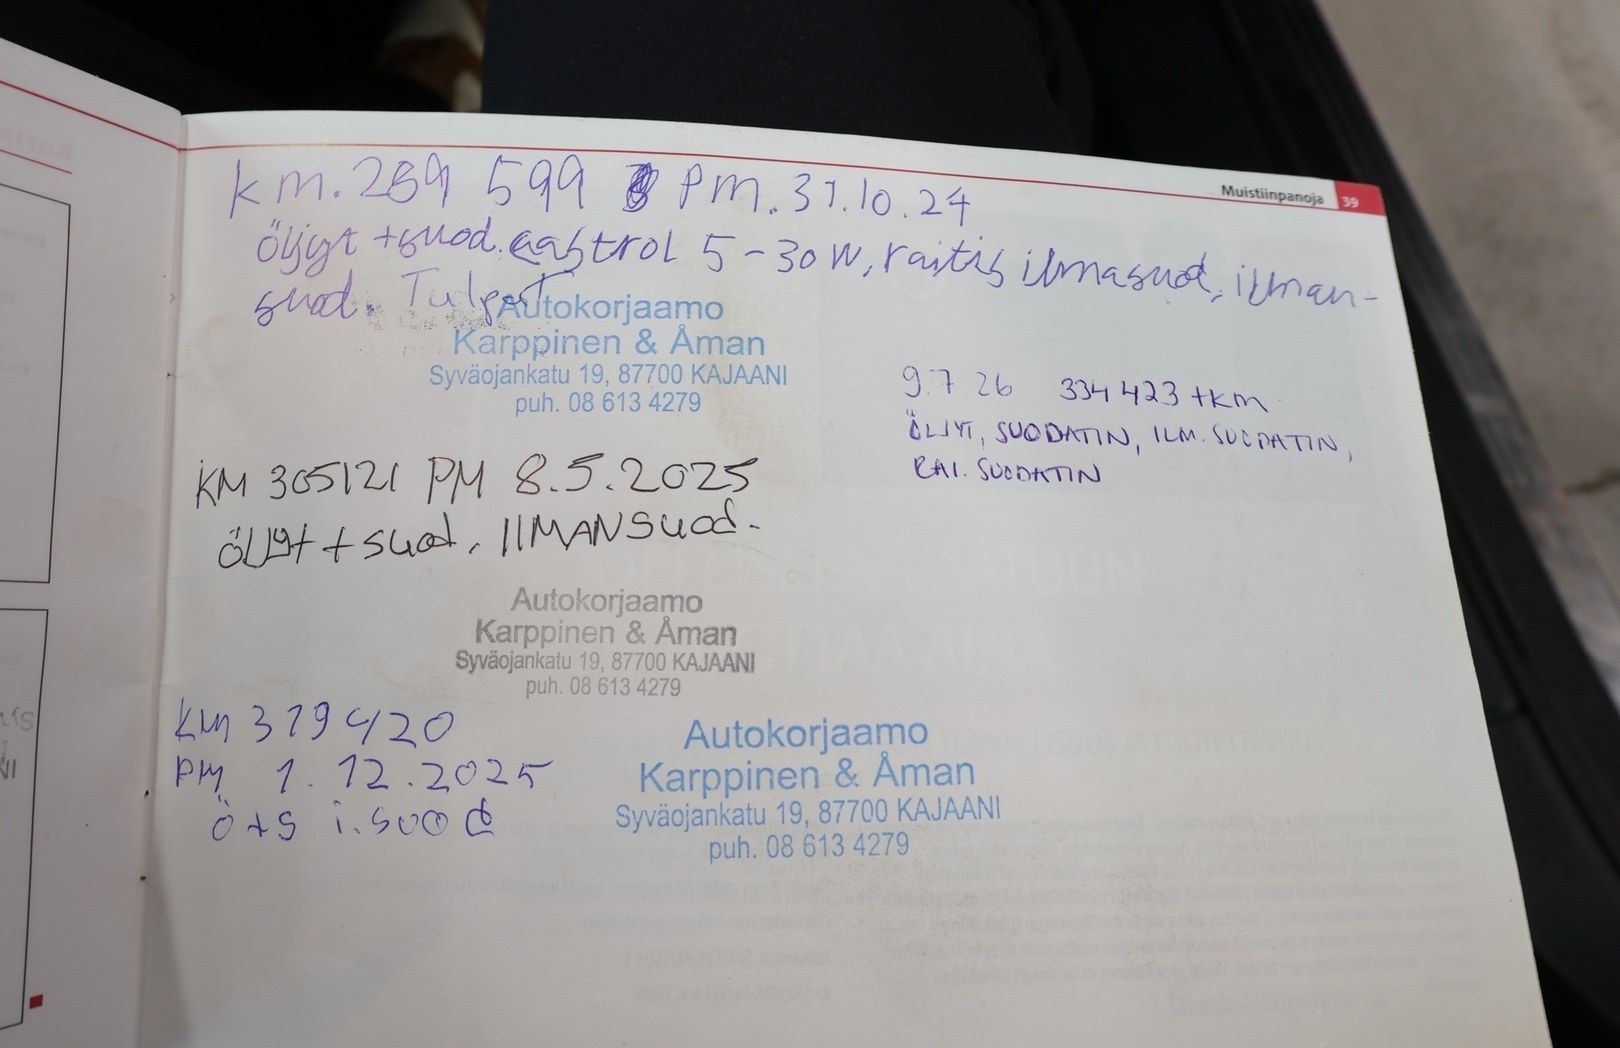 Muistiinpanoja 39
km. 289 599 PM. 31.10.24
Öljyt + suod. castrol 5-30W, raitis ilmasuod, ilman-
suod. Tulpat
Autokorjaamo
Karppinen & Åman
Syväojankatu 19, 87700 KAJAANI
puh. 08 613 4279
9.7.26 334 423 +km
ÖLJYT, SUODATIN, ILM. SUODATIN,
RAI. SUODATIN
KM 305121 PM 8.5.2025
ÖLJYt + suod, IIMANsuod-
Autokorjaamo
Karppinen & Åman
Syväojankatu 19, 87700 KAJAANI
puh. 08 613 4279
KM 319420
PM 1.12.2025
Ö+S i.suod
Autokorjaamo
Karppinen & Åman
Syväojankatu 19, 87700 KAJAANI
puh. 08 613 4279